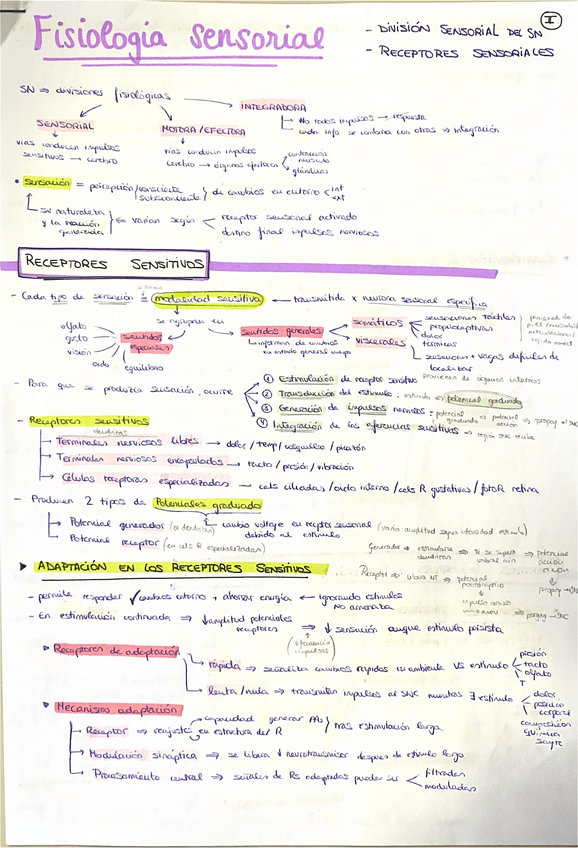 Fisiología sensorial
- DIVISIÓN SENSORIAL DEL SN
- RECEPTORES SENSORIALES
I
SN ⇒ divisiones fisiológicas
INTEGRADORA
No todos impulsos → respuesta
cada info se combina con otras → integración
SENSORIAL
vías conducen impulsos
sensitivos → cerebro
MOTORA/EFECTORA
vías conducen impulsos
cerebro → órganos efectores
contracción
músculo
glándulas
• sensación = percepción consciente / subconsciente } de cambios en entorno < int ext
su naturaleza
y la reacción
generada
varían según
receptor sensorial activado
destino final impulsos nerviosos
RECEPTORES SENSITIVOS
- Cada tipo de sensación = modalidad sensitiva ← transmitida x neurona sensorial específica
se agrupan en
olfato
gusto
visión
oído
equilibrio
sentidos
especiales
sentidos generales
informan de cambios
en estado general cuerpo
somáticos
sensaciones táctiles
propioceptivas
dolor
térmicas
viscerales
- Para que se produzca sensación, ocurre
① Estimulación de receptor sensitivo
② Transducción del estímulo: estímulo ⇒ potencial graduado
③ Generación de impulsos nerviosos: potencial graduado → potencial acción → propag al SNC
④ Integración de las aferencias sensitivas → región SNC recibe
- Receptores sensitivos
dendritas
Terminales nerviosos libres → dolor / temp / cosquilleo / picazón
Terminales nerviosos encapsulados → tacto / presión / vibración
Células receptoras especializadas → cels ciliadas / oído interno / cels R gustativas / fotoR retina
- Producen 2 tipos de Potenciales graduado
Potencial generador (en dendritas)
Potencial receptor (en cels R especializadas)
cambio voltaje en receptor sensorial
debido al estímulo
(varía amplitud según intensidad estímulo)
▶ ADAPTACIÓN EN LOS RECEPTORES SENSITIVOS
- permite responder ✓ cambios entorno + ahorrar energía ← ignorando estímulos
No amenaza
- En estimulación continuada ⇒ ↓ amplitud potenciales
receptores
⇒ ↓ sensación aunque estímulo persista
Receptores de adaptación
rápida ⇒ señaliza cambios rápidos en ambiente VS estímulo
presión
tacto
olfato
T
lenta / nula ⇒ transmiten impulsos al SNC mientras ∃ estímulo
dolor
posición
corporal
composición
química
sangre
Mecanismo adaptación
Receptor ⇒ reajustes
capacidad generar PAs
en estructura del R
tras estimulación larga
Modulación sináptica ⇒ se libera ↓ neurotransmisor despues de estímulo largo
Procesamiento central ⇒ señales de Rs adaptados pueden ser < filtradas
moduladas